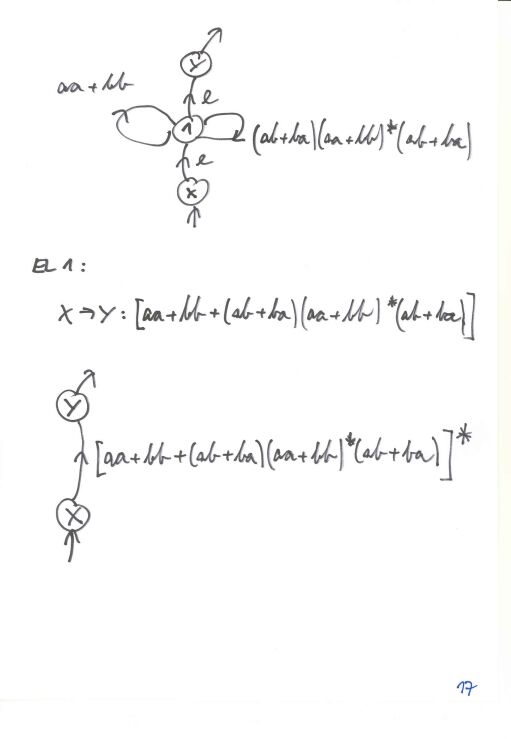 Y
aa + bb
e
1
(ab+ba)(aa+bb)*(ab+ba)
e
X
EL 1:
X → Y: [aa+bb+(ab+ba)(aa+bb)*(ab+ba)]
Y
[aa+bb+(ab+ba)(aa+bb)*(ab+ba)]*
X
17